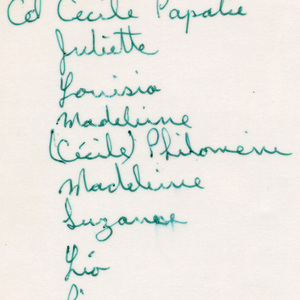 Cécile Papatie
Juliette
Louisia
Madeleine
(Cécile) Philomène
Madeleine
Suzanne
Léo